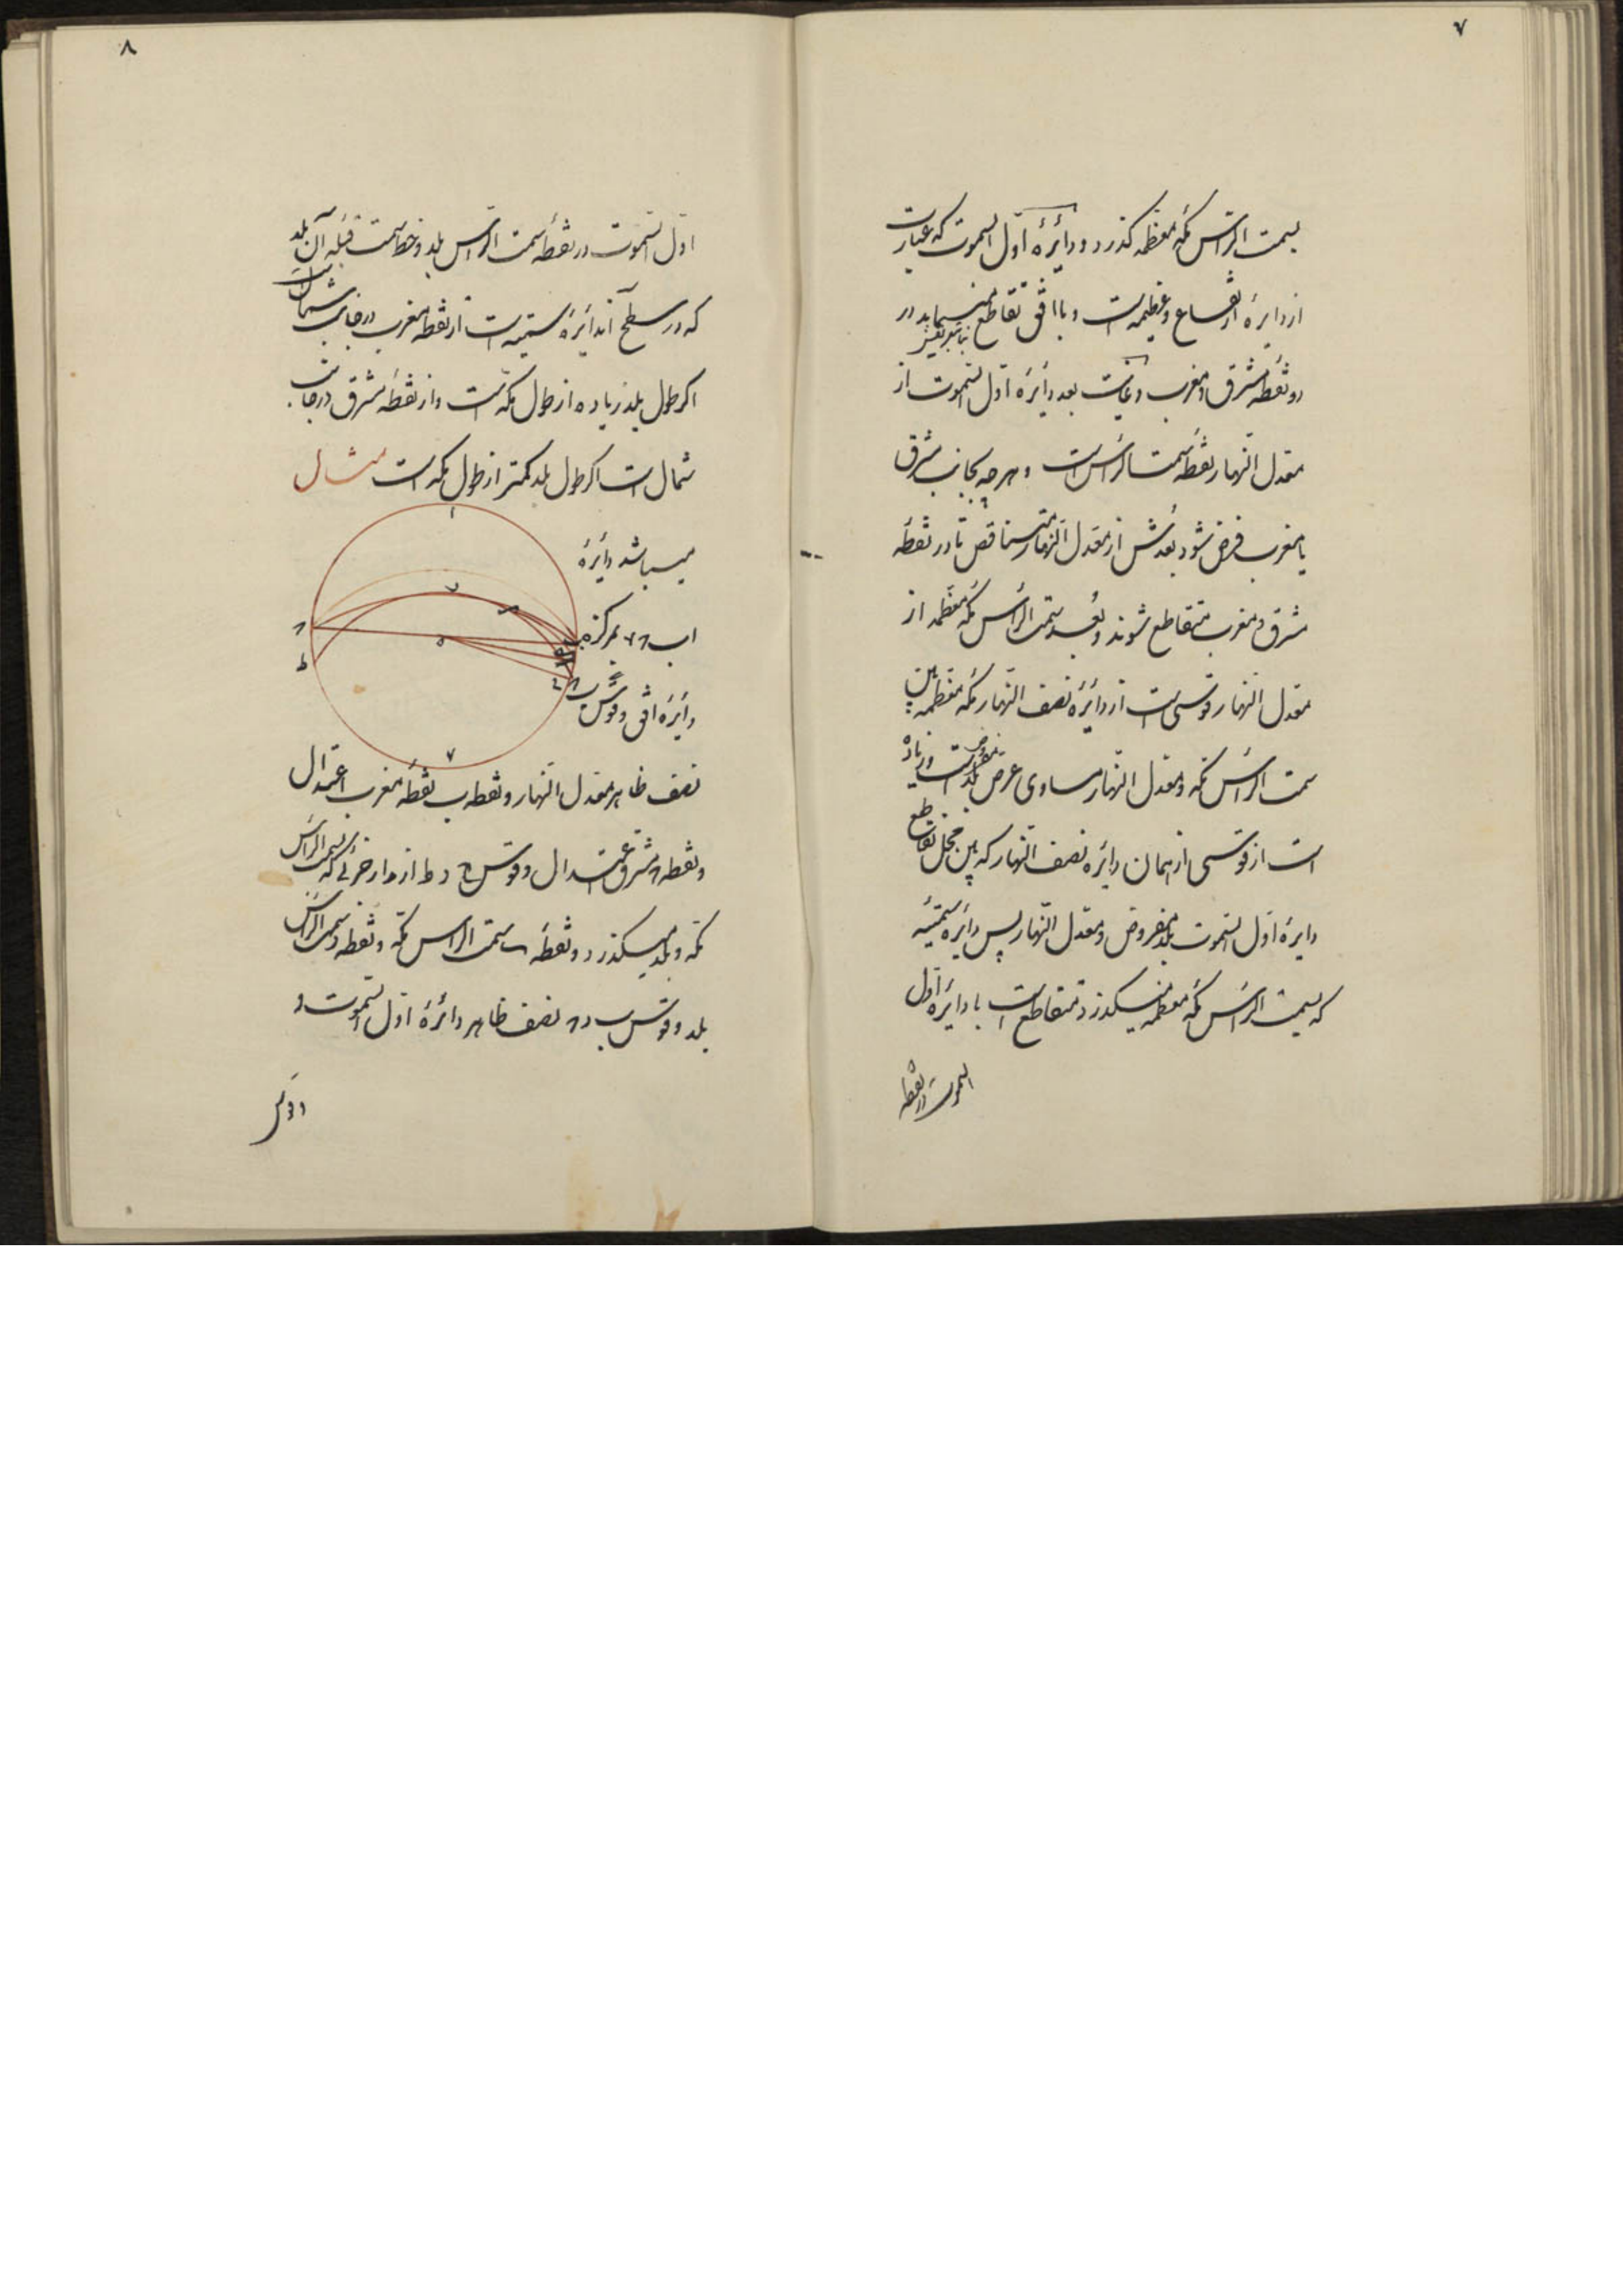 ۷
بسمت الراس مکه معظمه گذرد و دایرهٔ اول السموت که عبارت
از دایرهٔ ارتفاع عظیمه است و با افق تقاطع مینماید در
دو نقطه مشرق و مغرب و غایت بعد دایرهٔ اول السموت از
معدل النهار نقطه سمت الراس است و هر چه بجانب مشرق
یا مغرب فرض شود بعدش از معدل النهار متناقص تا در نقطه
مشرق و مغرب متقاطع شوند و بعد سمت الراس مکه معظمه از
معدل النهار قوسی است از دایرهٔ نصف النهار مکه معظمه بین
سمت الراس مکه و معدل النهار مساوی عرض بلد مفروض است و زیاده
است از قوسی از همان دایره نصف النهار که بین محل تقاطع
دایرهٔ اول السموت بلد مفروض و معدل النهار پس دایرهٔ سمتیه
که بسمت الراس مکه معظمه میگذرد متقاطع است با دایرهٔ اول
السموت در نقطه
۸
اول السموت در نقطه سمت الراس بلد و خط سمت قبله آن بلد
که در سطح آن دایرهٔ سمتیه است از نقطه مغرب در جانب شمال است
اگر طول بلد زیاده از طول مکه است و از نقطه مشرق در جانب
شمال است اگر طول بلد کمتر از طول مکه است مثال
میباشد دایرهٔ
اب ح بمرکز ه
دایرهٔ افق و قوس ب
نصف ظاهر معدل النهار و نقطه ب نقطه مغرب اعتدال
و نقطه مشرق اعتدال و قوس ح د ط از مدار جزئی که بسمت الراس
مکه و بلد میگذرد و نقطه س سمت الراس مکه و نقطه د سمت الراس
بلد و قوس ب د نصف ظاهر دائرهٔ اول السموت و
و قوس